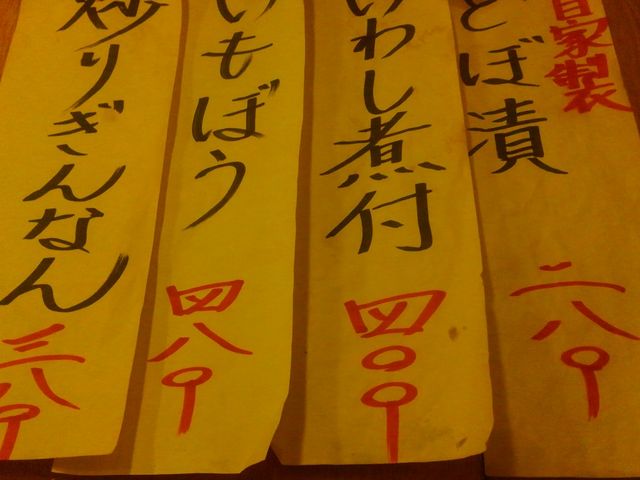 自家製
どぼ漬
二八〇
いわし煮付
四〇〇
いもぼう
四八〇
炒りぎんなん
三八〇